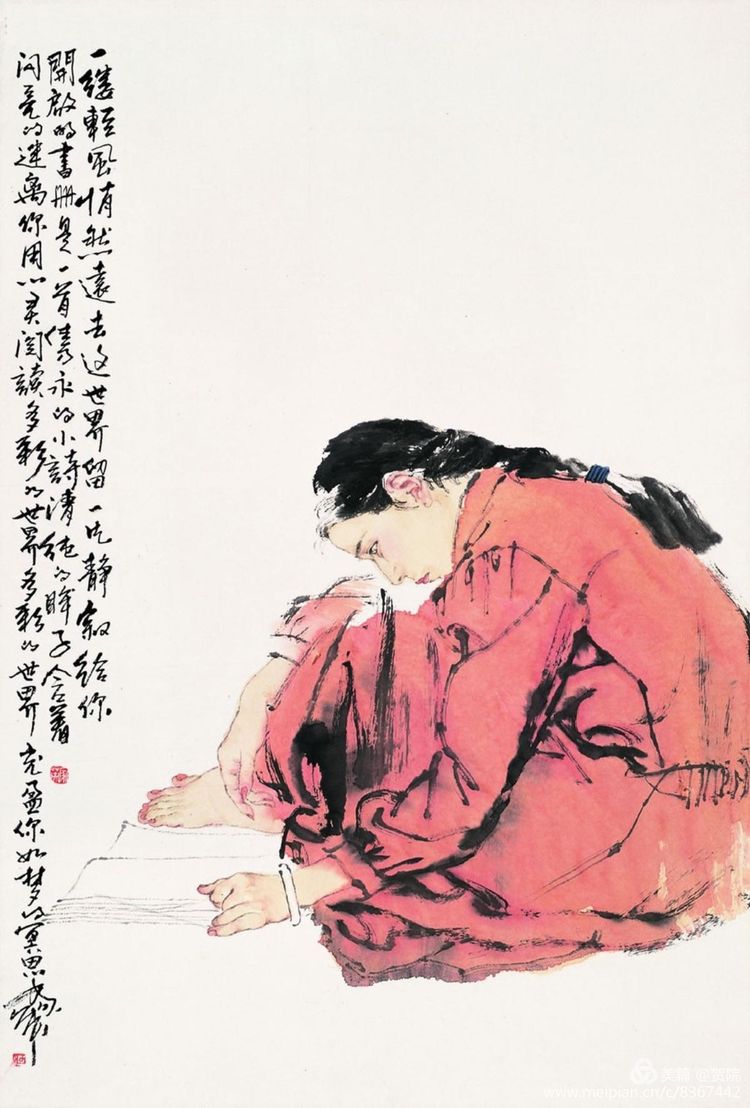 一缕輕風悄然遠去这世界留一片静寂给你
開啟的書册是一首隽永的小詩清纯的眸子含着
闪亮的迷离你用心灵阅讀多彩的世界多彩的世界充盈你如梦的冥思
美篇 @贺院
www.meipian.cn/c/8367442